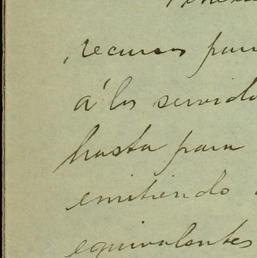 recursos para
á los servido
hasta para
emitiendo
equivalentes